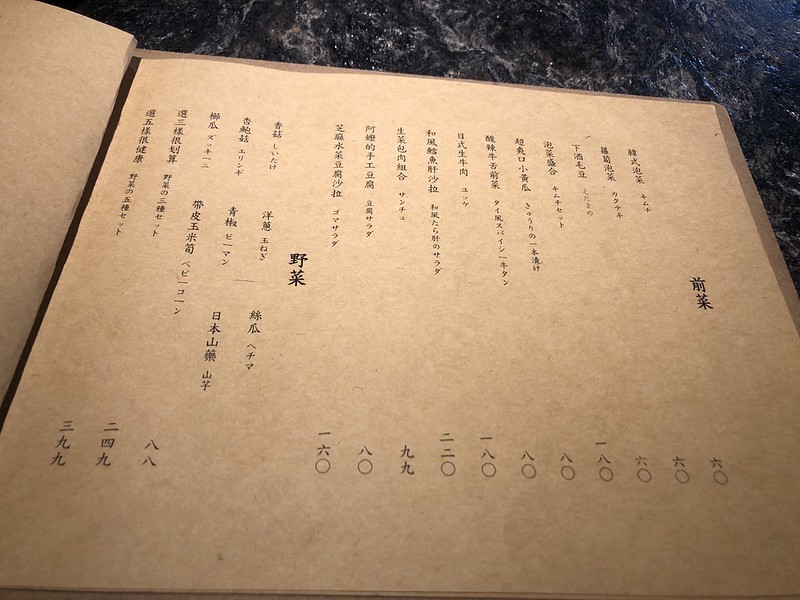 前菜
韓式泡菜 キムチ 六〇
蘿蔔泡菜 カクテキ 六〇
下酒毛豆 えだまめ 六〇
泡菜盛合 キムチセット 一八〇
超爽口小黃瓜 きゅうりの一本漬け 八〇
酸辣牛舌前菜 タイ風スパイシー牛タン 八〇
日式生牛肉 ユッケ 一八〇
和風鱈魚肝沙拉 和風たら肝のサラダ 二二〇
生菜包肉組合 サンチュ 九九
阿嬤的手工豆腐 豆腐サラダ 八〇
芝麻水菜豆腐沙拉 ゴマサラダ 一六〇
野菜
香菇 しいたけ 洋蔥 玉ねぎ 絲瓜 ヘチマ
杏鮑菇 エリンギ 青椒 ピーマン 日本山藥 山芋
櫛瓜 ズッキーニ 帶皮玉米筍 ベビーコーン 八八
選三樣很划算 野菜の三種セット 二四九
選五樣很健康 野菜の五種セット 三九九